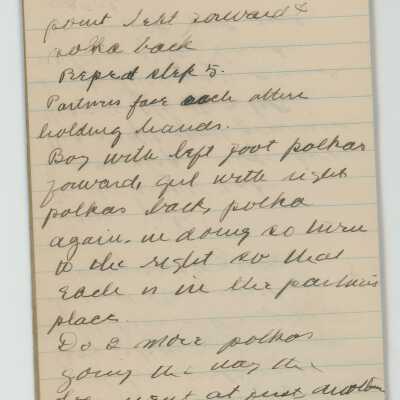 point left forward &
polka back
Repeat step 5.
Partners face each other
holding hands.
Boy with left foot polkas
forward, girl with right
polkas back, polka
again, in doing so turn
to the right so that
each is in the partners
place.
Do 2 more polkas
going the way the
went at first, another